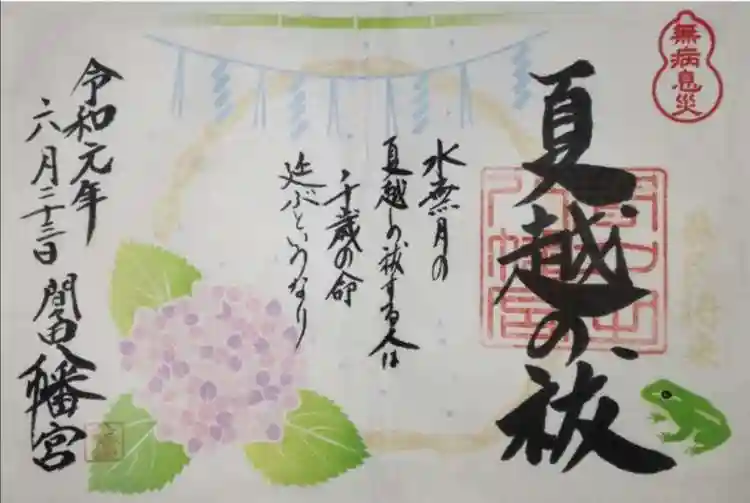 無病息災
夏越の祓
水無月の
夏越の祓する人は
千歳の命
延ぶといふなり
令和元年
六月二十三日
間々田八幡宮